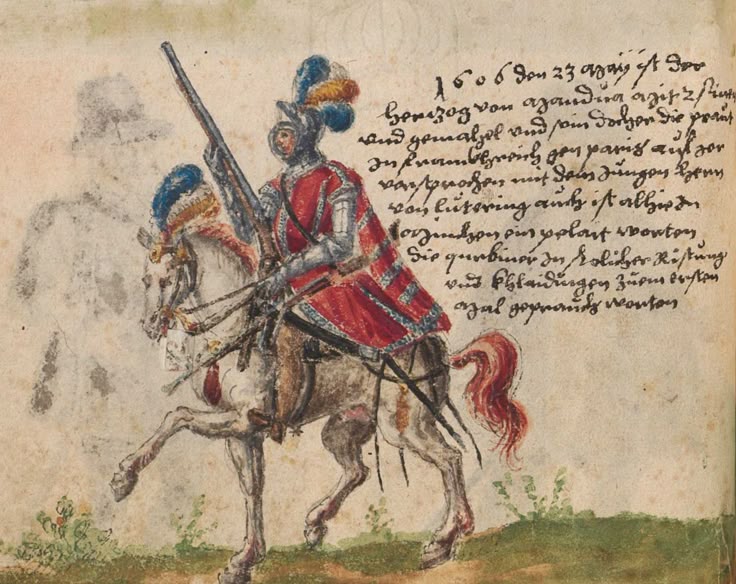 1606 den 23 Mayij ist der
Hertzog von Mandua Mit 2 Sünen
und gemahel und ein dochter die praut
In Frankhreich gen paris auf Ier
versprochen mit dem Jungen Herrn
von lutering auch ist alhie In
Minichen ein pelait worten
die qurbiner In Solicher Rüstung
und Khlaidungen zuem ersten
Mal geprauch worten